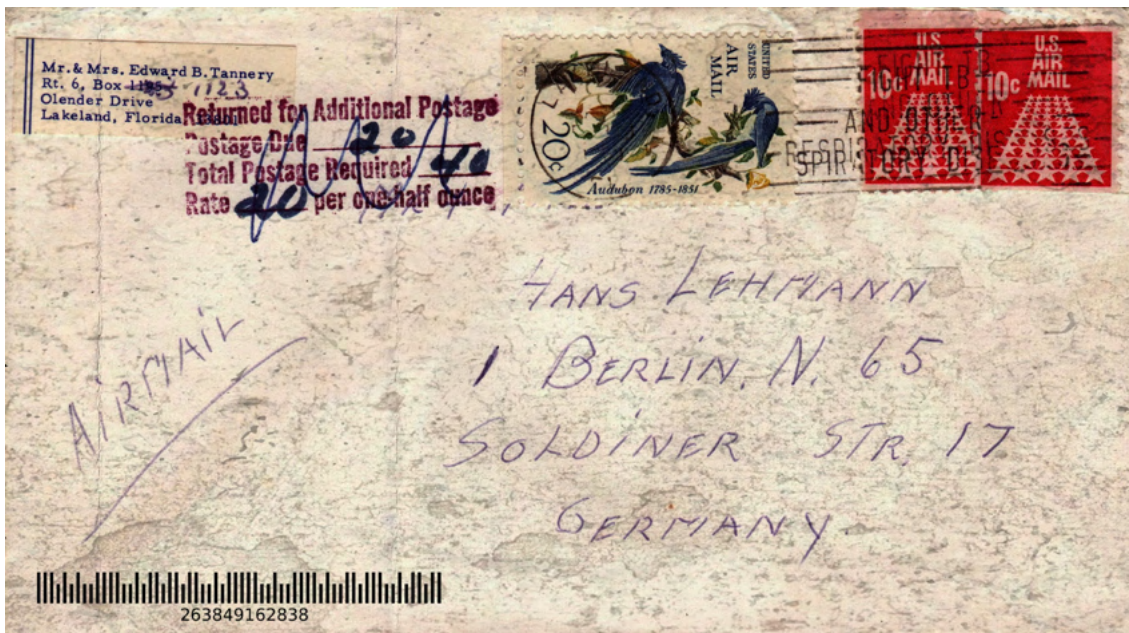 Mr. & Mrs. Edward B. Tannery
Rt. 6, Box 1123
Olender Drive
Lakeland, Florida
Returned for Additional Postage
Postage Due 20
Total Postage Required 40
Rate 20 per one-half ounce
UNITED STATES
AIR MAIL
20c
Audubon 1785-1851
U.S. AIR MAIL
10c
U.S. AIR MAIL
10c
FIGHT TB
AND OTHER
RESPIRATORY DISEASES
AIRMAIL
HANS LEHMANN
1 BERLIN. N. 65
SOLDINER STR. 17
GERMANY
263849162838